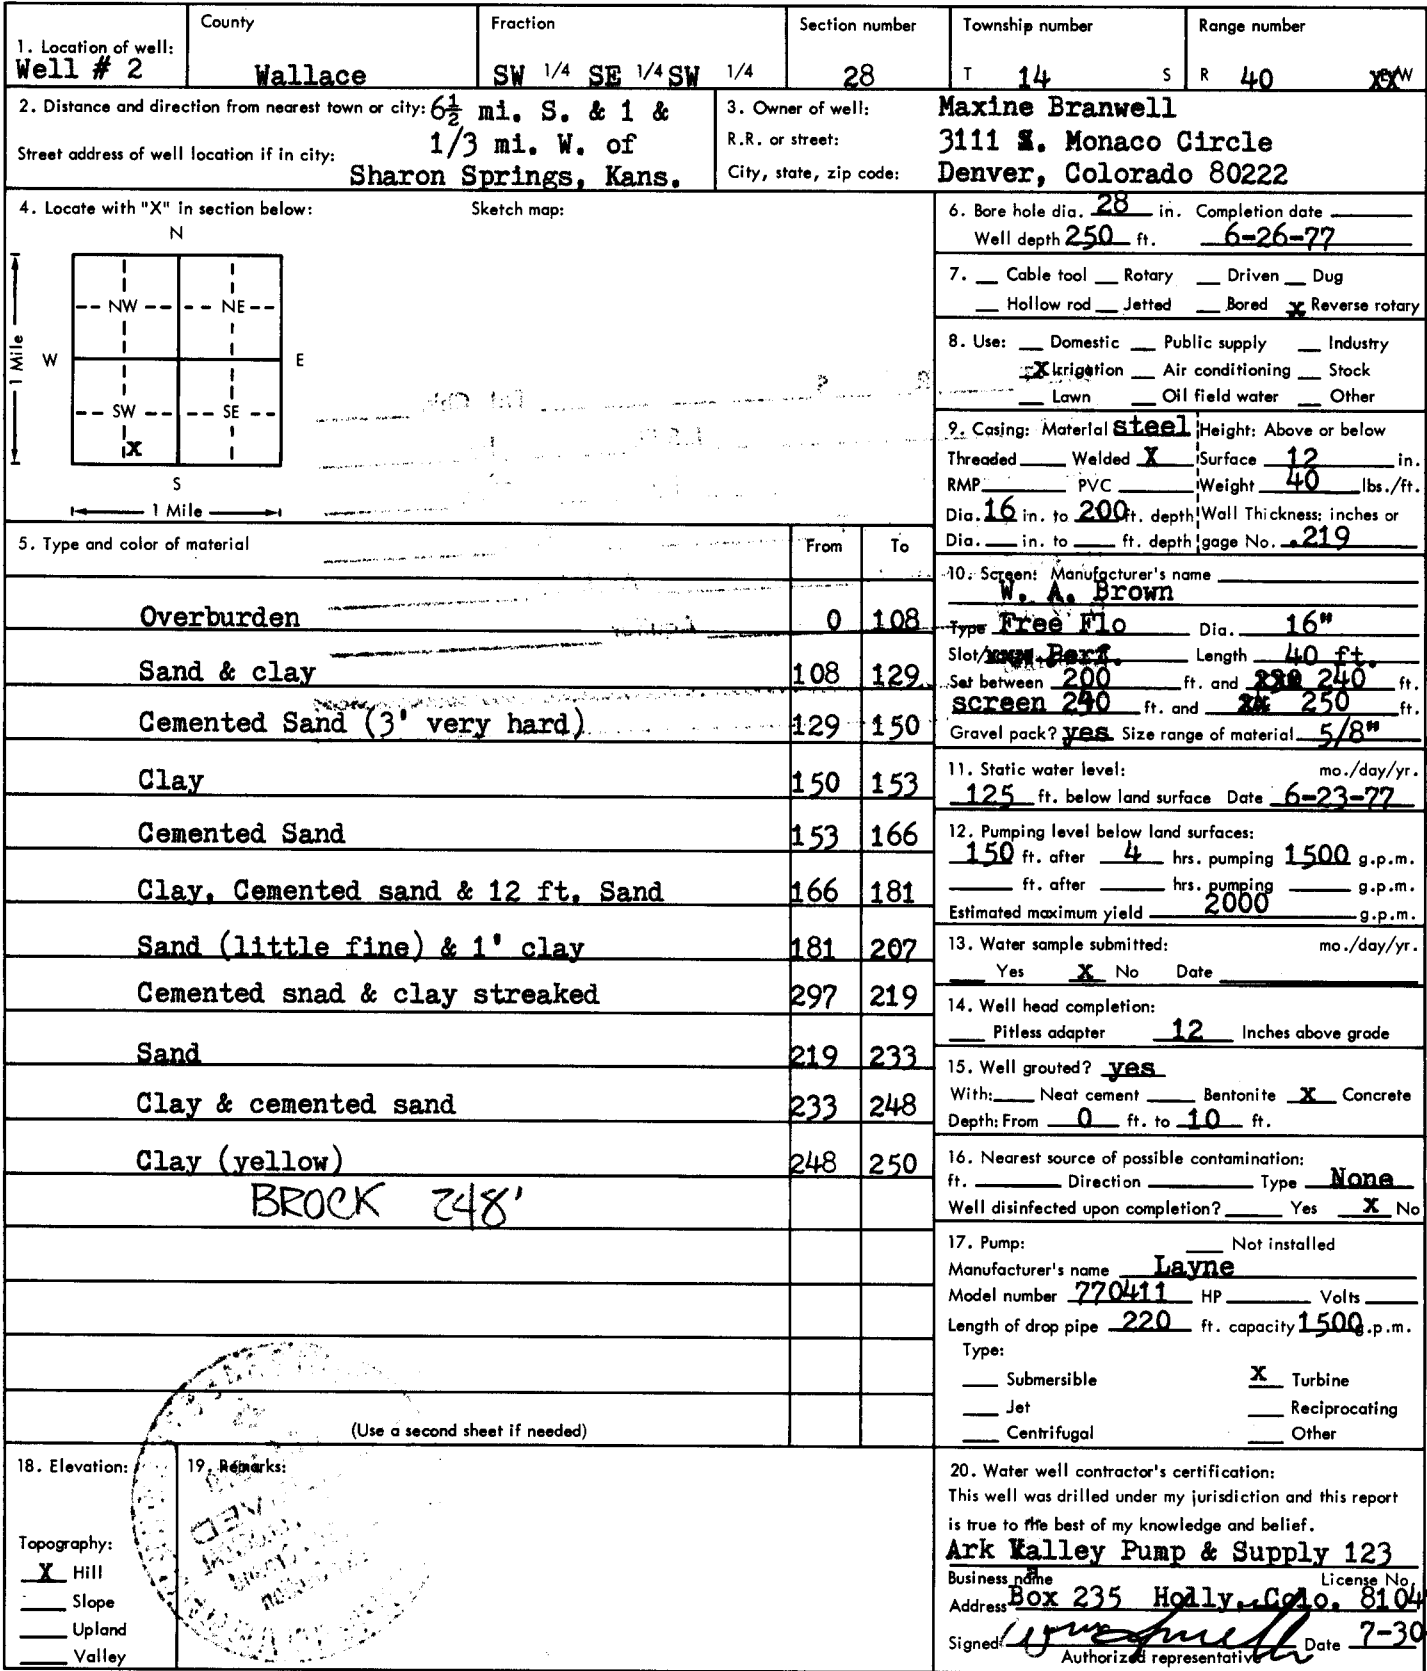 1. Location of well:
Well # 2
County
Wallace
Fraction
SW 1/4 SE 1/4 SW 1/4
Section number
28
Township number
T 14 S
Range number
R 40 W
2. Distance and direction from nearest town or city: 6½ mi. S. & 1 &
1/3 mi. W. of
Street address of well location if in city:
Sharon Springs, Kans.
3. Owner of well: Maxine Branwell
R.R. or street: 3111 S. Monaco Circle
City, state, zip code: Denver, Colorado 80222
4. Locate with "X" in section below:
Sketch map:
N
NW NE
W E
1 Mile
SW SE
X
S
1 Mile
5. Type and color of material From To
Overburden 0 108
Sand & clay 108 129
Cemented Sand (3' very hard) 129 150
Clay 150 153
Cemented Sand 153 166
Clay, Cemented sand & 12 ft. Sand 166 181
Sand (little fine) & 1' clay 181 207
Cemented snad & clay streaked 297 219
Sand 219 233
Clay & cemented sand 233 248
Clay (yellow) 248 250
BROCK 248'
(Use a second sheet if needed)
6. Bore hole dia. 28 in. Completion date
Well depth 250 ft. 6-26-77
7. Cable tool Rotary Driven Dug
Hollow rod Jetted Bored X Reverse rotary
8. Use: Domestic Public supply Industry
X Irrigation Air conditioning Stock
Lawn Oil field water Other
9. Casing: Material steel Height: Above or below
Threaded Welded X Surface 12 in.
RMP PVC Weight 40 lbs./ft.
Dia. 16 in. to 200 ft. depth Wall Thickness: inches or
Dia. in. to ft. depth gage No. .219
10. Screen: Manufacturer's name
W. A. Brown
Type Free Flo Dia. 16"
Slot/ Perf. Length 40 ft.
Set between 200 ft. and 240 ft.
screen 240 ft. and 250 ft.
Gravel pack? yes Size range of material 5/8"
11. Static water level: mo./day/yr.
125 ft. below land surface Date 6-23-77
12. Pumping level below land surfaces:
150 ft. after 4 hrs. pumping 1500 g.p.m.
ft. after hrs. pumping g.p.m.
Estimated maximum yield 2000 g.p.m.
13. Water sample submitted: mo./day/yr.
Yes X No Date
14. Well head completion:
Pitless adapter 12 Inches above grade
15. Well grouted? yes
With: Neat cement Bentonite X Concrete
Depth: From 0 ft. to 10 ft.
16. Nearest source of possible contamination:
ft. Direction Type None
Well disinfected upon completion? Yes X No
17. Pump: Not installed
Manufacturer's name Layne
Model number 770411 HP Volts
Length of drop pipe 220 ft. capacity 1500 g.p.m.
Type:
Submersible X Turbine
Jet Reciprocating
Centrifugal Other
18. Elevation:
Topography:
X Hill
Slope
Upland
Valley
19. Remarks:
20. Water well contractor's certification:
This well was drilled under my jurisdiction and this report
is true to the best of my knowledge and belief.
Ark Valley Pump & Supply 123
Business name License No.
Address Box 235 Holly, Colo. 8104
Signed Date 7-30
Authorized representative